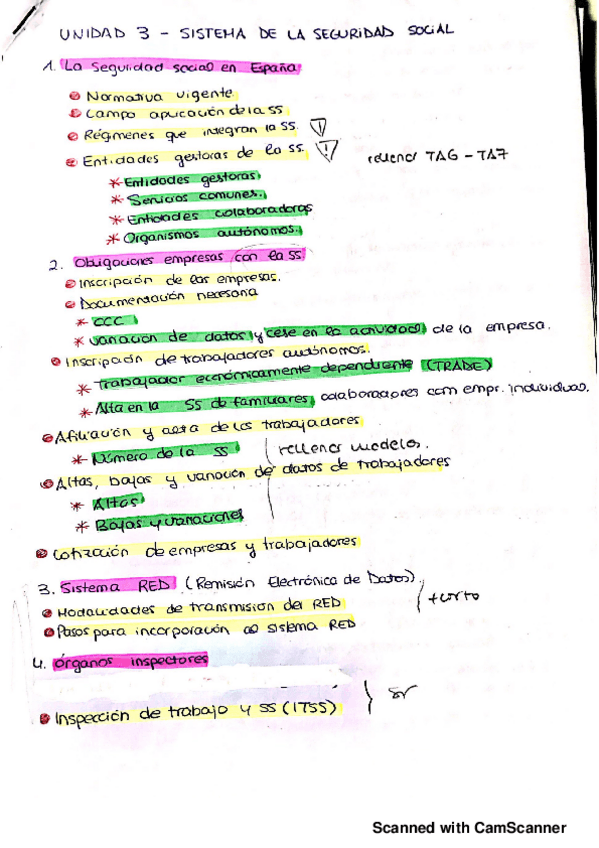 UNIDAD 3 - SISTEMA DE LA SEGURIDAD SOCIAL
1. La Seguridad social en España
Normativa vigente
Campo aplicación de la SS
Régimenes que integran la SS. !
Entidades gestoras de la SS. ! rellenar TA6 - TA7
* Entidades gestoras.
* Servicios comunes.
* Entidades colaboradoras
* Organismos autónomos.
2. Obligaciones empresas con la SS
Inscripción de las empresas.
Documentación necesaria
* CCC
* Variación de datos y cese en la actividad de la empresa.
Inscripción de trabajadores autónomos.
* Trabajador económicamente dependiente (TRADE)
* Alta en la SS de familiares colaboradores com empr. individuas.
Afiliación y alta de los trabajadores
* Número de la SS rellenar modelos.
Altas, bajas y variación de datos de trabajadores
* Altas
* Bajas y variaciones
Cotización de empresas y trabajadores
3. Sistema RED (Remisión Electrónica de Datos)
Modalidades de transmisión del RED + corto
Pasos para incorporación al sistema RED
4. órganos inspectores
Inspección de trabajo y SS (ITSS)
Scanned with CamScanner